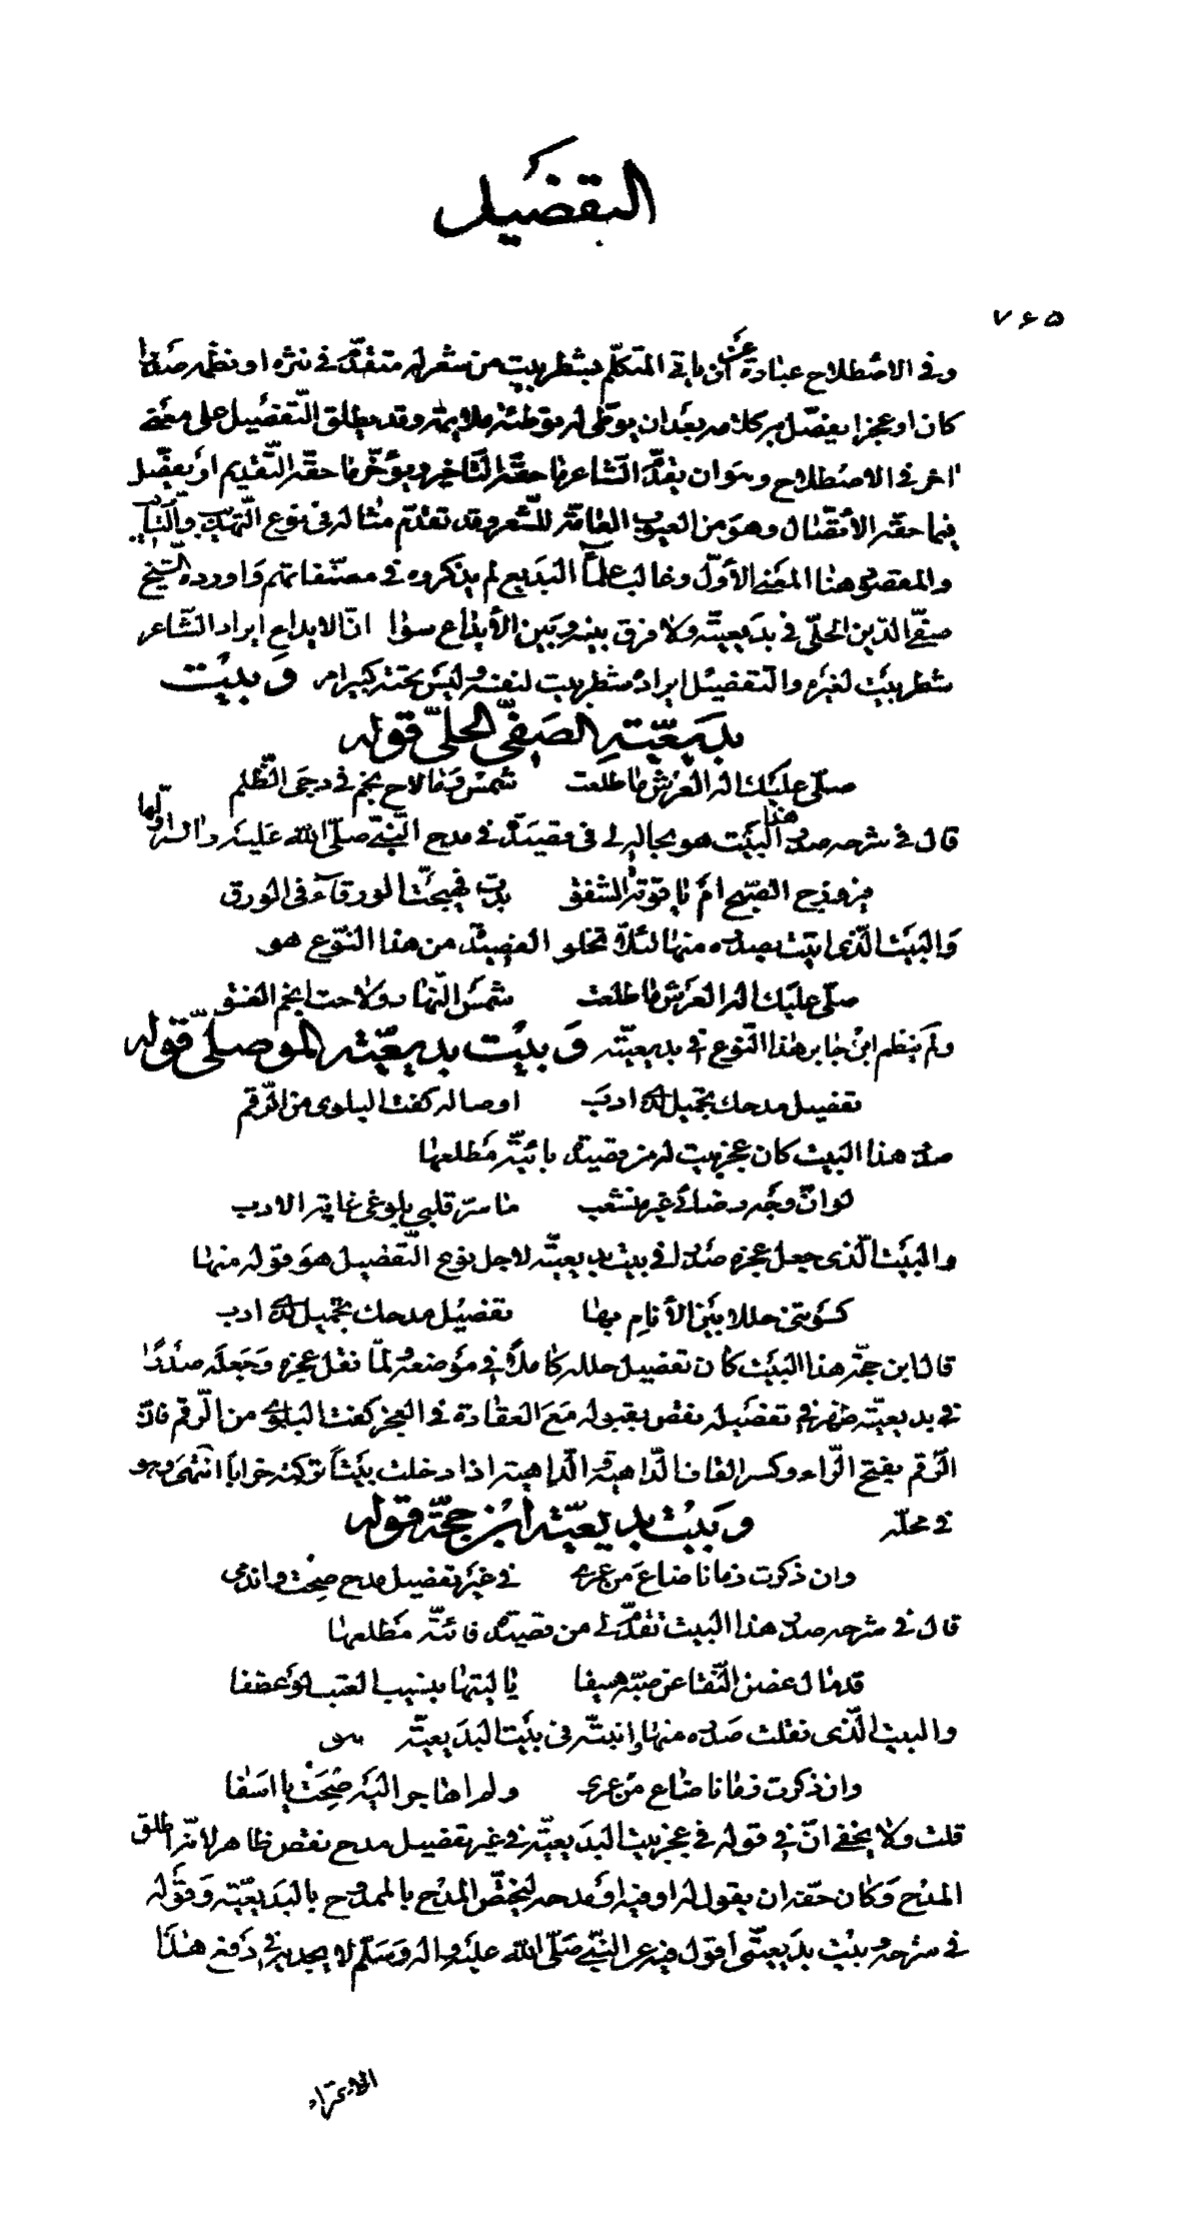 التفصيل
٧۶۵
وفى الاصطلاح عبارة عن أن ياتى المتكلّم بشطر بيت من شعر له متقدّم فى نثره او نظمه صدرا
كان او عجزا يفصّل به كلامه بعد ان يوطّى له توطئة ملايمة وقد يطلق التّفصيل على معنى
اخر فى الاصطلاح وهو ان يقدّم الشاعر ما حقّه التّاخير ويؤخّر ما حقّه التّقديم او يفصّل
فيما حقّه الأتّصال وهو من العيوب العامّة للشّعر وقد تقدّم مثاله فى نوع التّهذيب والتّأديب
والمقصود هنا المعنى الأوّل وغالب علمآء البديع لم يذكروه فى مصنّفاتهم واورده الشّيخ
صفىّ الدّين الحلّى فى بديعيّته ولا فرق بينه وبين الأيداع سوا انّ الايداع ايراد الشّاعر
شطر بيت لغيره والتّفصيل ايراده شطر بيت لنفسه وليس تحته كبير امر وبيت
بديعيّة الصّفىّ الحلّىّ قوله
صلّى عليك اله العرش ما طلعت شمس وما لاح نجم فى دجى الظّلم
قال فى شرحه صدر هذا البيت هو بحاله لى فى قصيدة فى مدح النّبىّ صلّى الله عليه واله اوّلها
فيروزج الصّبح أم ياقوتة الشّفق بدت فهيجت الورقآء فى الورق
والبيت الّذى اتيت بصدره منها لئلّا تخلو القصيدة من هذا النّوع هو
صلّى عليك اله العرش ما طلعت شمس النّهار ولاحت انجم الغسق
ولم ينظم ابن جابر هذا النّوع فى بديعيّته وبيت بديعيّة الموصلىّ قوله
تفصيل مدحك تجميل لذى ادب اوصاله كفت البلوى من الرّقم
صدر هذا البيت كان عجز بيت له من قصيدة بائيّة مطلعها
لو انّ وجه رضاك غير منتقب ما سرّ قلبى بلوغى غاية الادب
والبيت الّذى جعل عجزه صدرا فى بيت بديعيّته لاجل نوع التّفصيل هو قوله منها
كسوتنى حللا بين الأنام بها تفصيل مدحك تجميل لذى ادب
قال ابن حجّة هذا البيت كان تفصيل حلله كاملا فى موضعه ولمّا نقل عجزه وجعله صدرا
فى بديعيّته ظهر فى تفصيله نقص بقبوله مع العقادة فى العجز كفت البلوى من الرّقم فانّ
الرّقم بفتح الرّاء وكسر القاف الدّاهية الدّاهية اذا دخلت بيتا تركته خرابا انتهى وهو
فى محلّه وبيت بديعيّة ابن حجّة قوله
وان ذكرت زمانا ضاع من عمرى فى غير تفصيل مدح صحت واندمى
قال فى شرحه صدر هذا البيت تقدّم لى من قصيدة فائيّة مطلعها
قد مال غصن النّقا عن صبّه هيفا يا ليتها بنسيب العتب لو عطفا
والبيت الّذى نقلت صدره منها واثبتّه فى بيت البديعيّة هو
وان ذكرت زمانا ضاع من عمرى ولم اهاجر اليه صحت يا اسفا
قلت ولا يخفى انّ فى قوله فى عجز بيت البديعيّة فى غير تفصيل مدح نقص ظاهر لانّه اطلق
المدح وكان حقّه ان يقول له او فيه او مدحه ليختصّ المدح بالممدوح بالبديعيّة وقوله
فى شرحه وبيت بديعيّتى اقول فيه عن النّبىّ صلّى الله عليه واله وسلّم لا يجديه فى دفع هذا